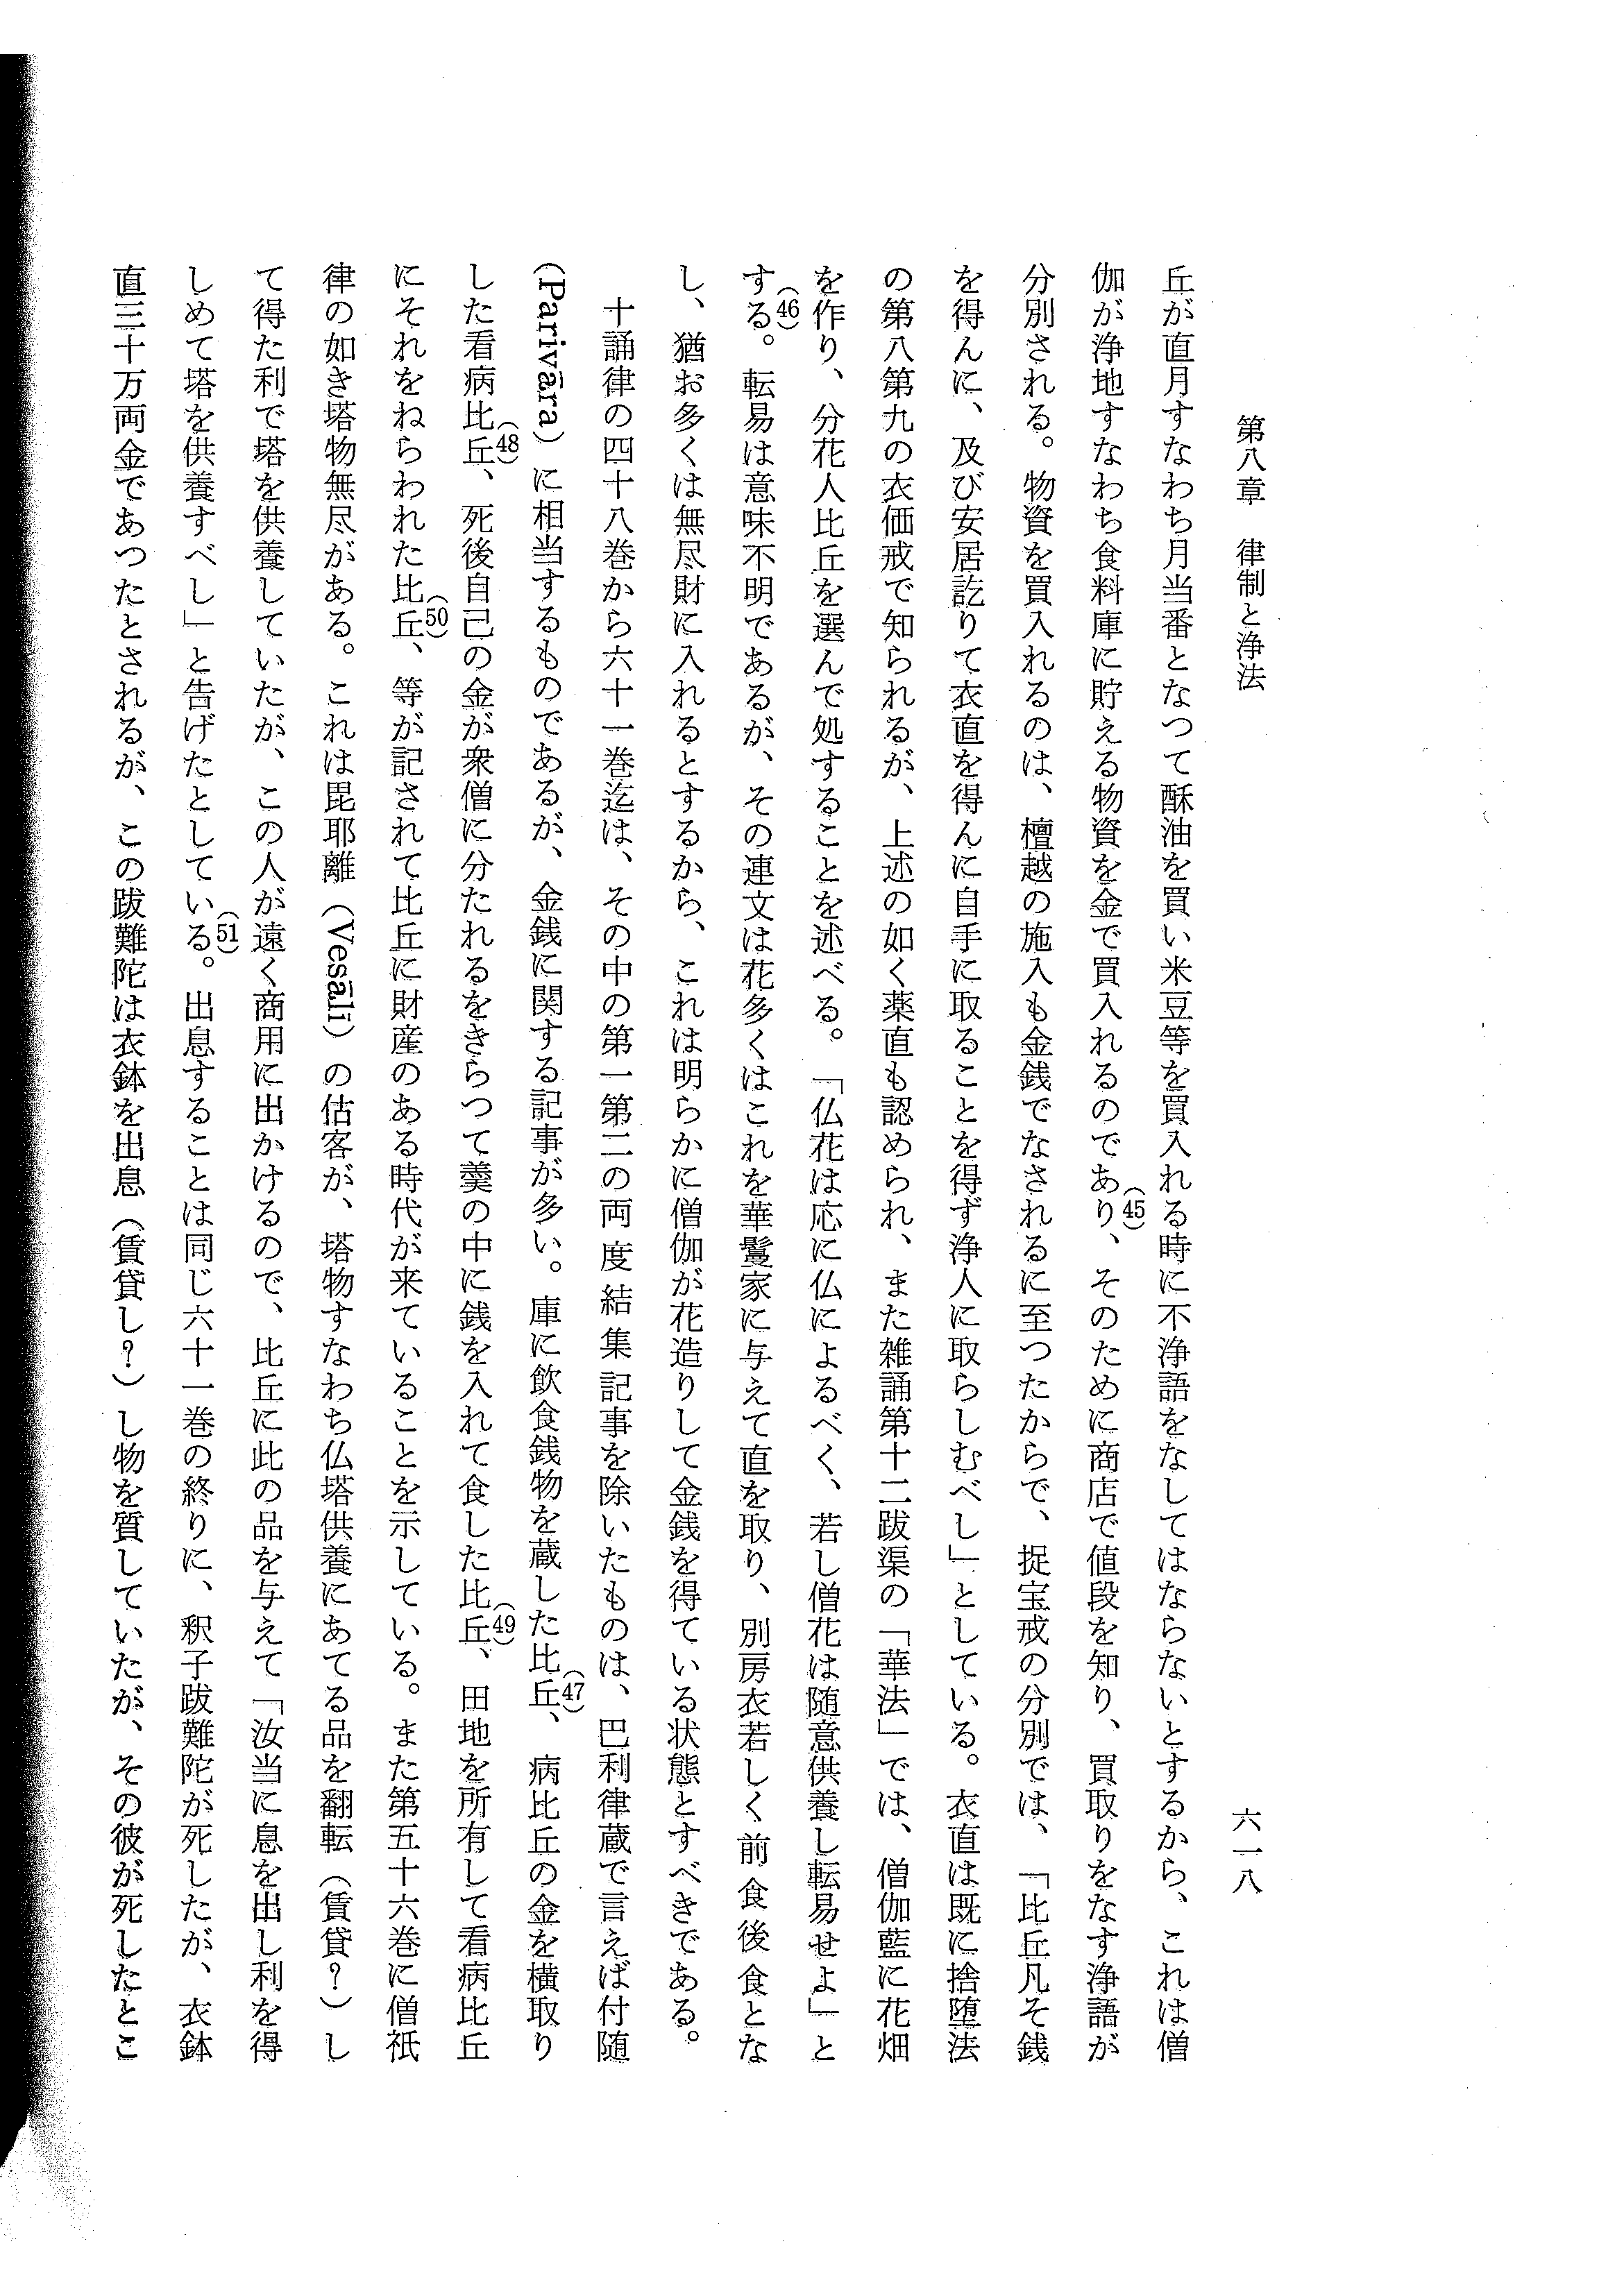 第八章　律制と浄法
六一八
丘が直月すなわち月当番となつて酥油を買い米豆等を買入れる時に不浄語をなしてはならないとするから、これは僧
伽が浄地すなわち食料庫に貯える物資を金で買入れるのであり(45)、そのために商店で値段を知り、買取りをなす浄語が
分別される。物資を買入れるのは、檀越の施入も金銭でなされるに至つたからで、捉宝戒の分別では、「比丘凡そ銭
を得んに、及び安居訖りて衣直を得んに自手に取ることを得ず浄人に取らしむべし」としている。衣直は既に捨堕法
の第八第九の衣価戒で知られるが、上述の如く薬直も認められ、また雑誦第十二跋渠の「華法」では、僧伽藍に花畑
を作り、分花人比丘を選んで処することを述べる。「仏花は応に仏によるべく、若し僧花は随意供養し転易せよ」と
する(46)。転易は意味不明であるが、その連文は花多くはこれを華鬘家に与えて直を取り、別房衣若しく前食後食とな
し、猶お多くは無尽財に入れるとするから、これは明らかに僧伽が花造りして金銭を得ている状態とすべきである。
十誦律の四十八巻から六十一巻迄は、その中の第一第二の両度結集記事を除いたものは、巴利律蔵で言えば付随
(Parivāra)に相当するものであるが、金銭に関する記事が多い。庫に飲食銭物を蔵した比丘(47)、病比丘の金を横取り
した看病比丘(48)、死後自己の金が衆僧に分たれるをきらつて羹の中に銭を入れて食した比丘(49)、田地を所有して看病比丘
にそれをねらわれた比丘(50)、等が記されて比丘に財産のある時代が来ていることを示している。また第五十六巻に僧祇
律の如き塔物無尽がある。これは毘耶離(Vesāli)の估客が、塔物すなわち仏塔供養にあてる品を翻転(賃貸?)し
て得た利で塔を供養していたが、この人が遠く商用に出かけるので、比丘に此の品を与えて「汝当に息を出し利を得
しめて塔を供養すべし」と告げたとしている(51)。出息することは同じ六十一巻の終りに、釈子跋難陀が死したが、衣鉢
直三十万両金であつたとされるが、この跋難陀は衣鉢を出息(賃貸し?)し物を質していたが、その彼が死したとこ